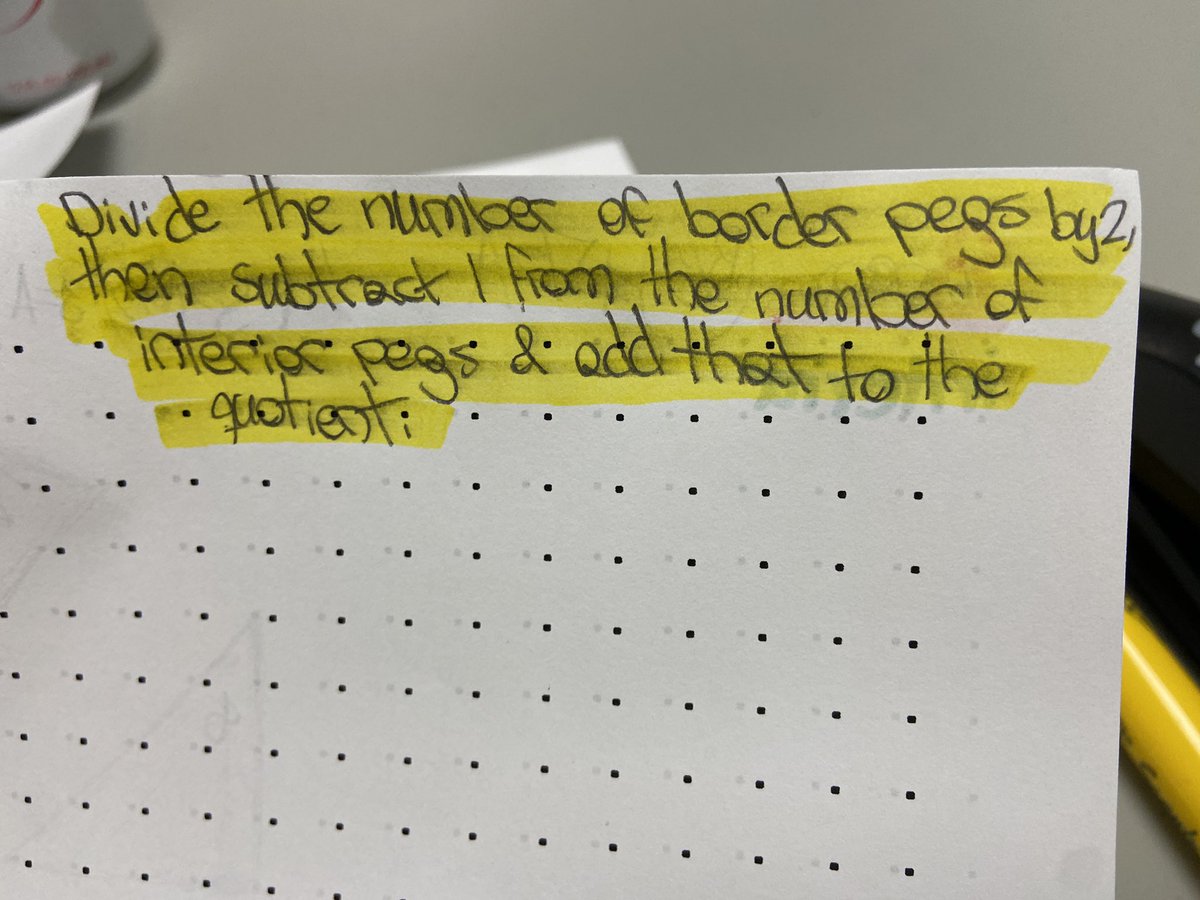 Divide the number of border pegs by 2,
then subtract 1 from the number of
interior pegs & add that to the
quotient.